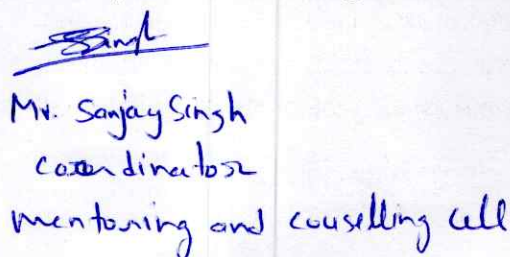 SSingh
Mr. Sanjay Singh
coordinator
mentoring and couselling cell